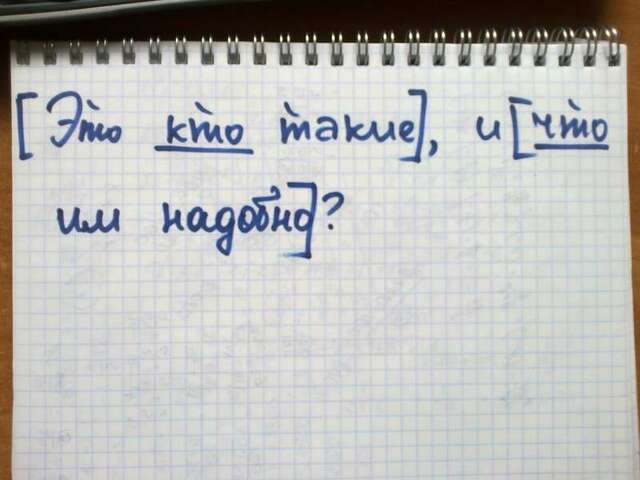 [Это кто такие], и [что
им надобно]?